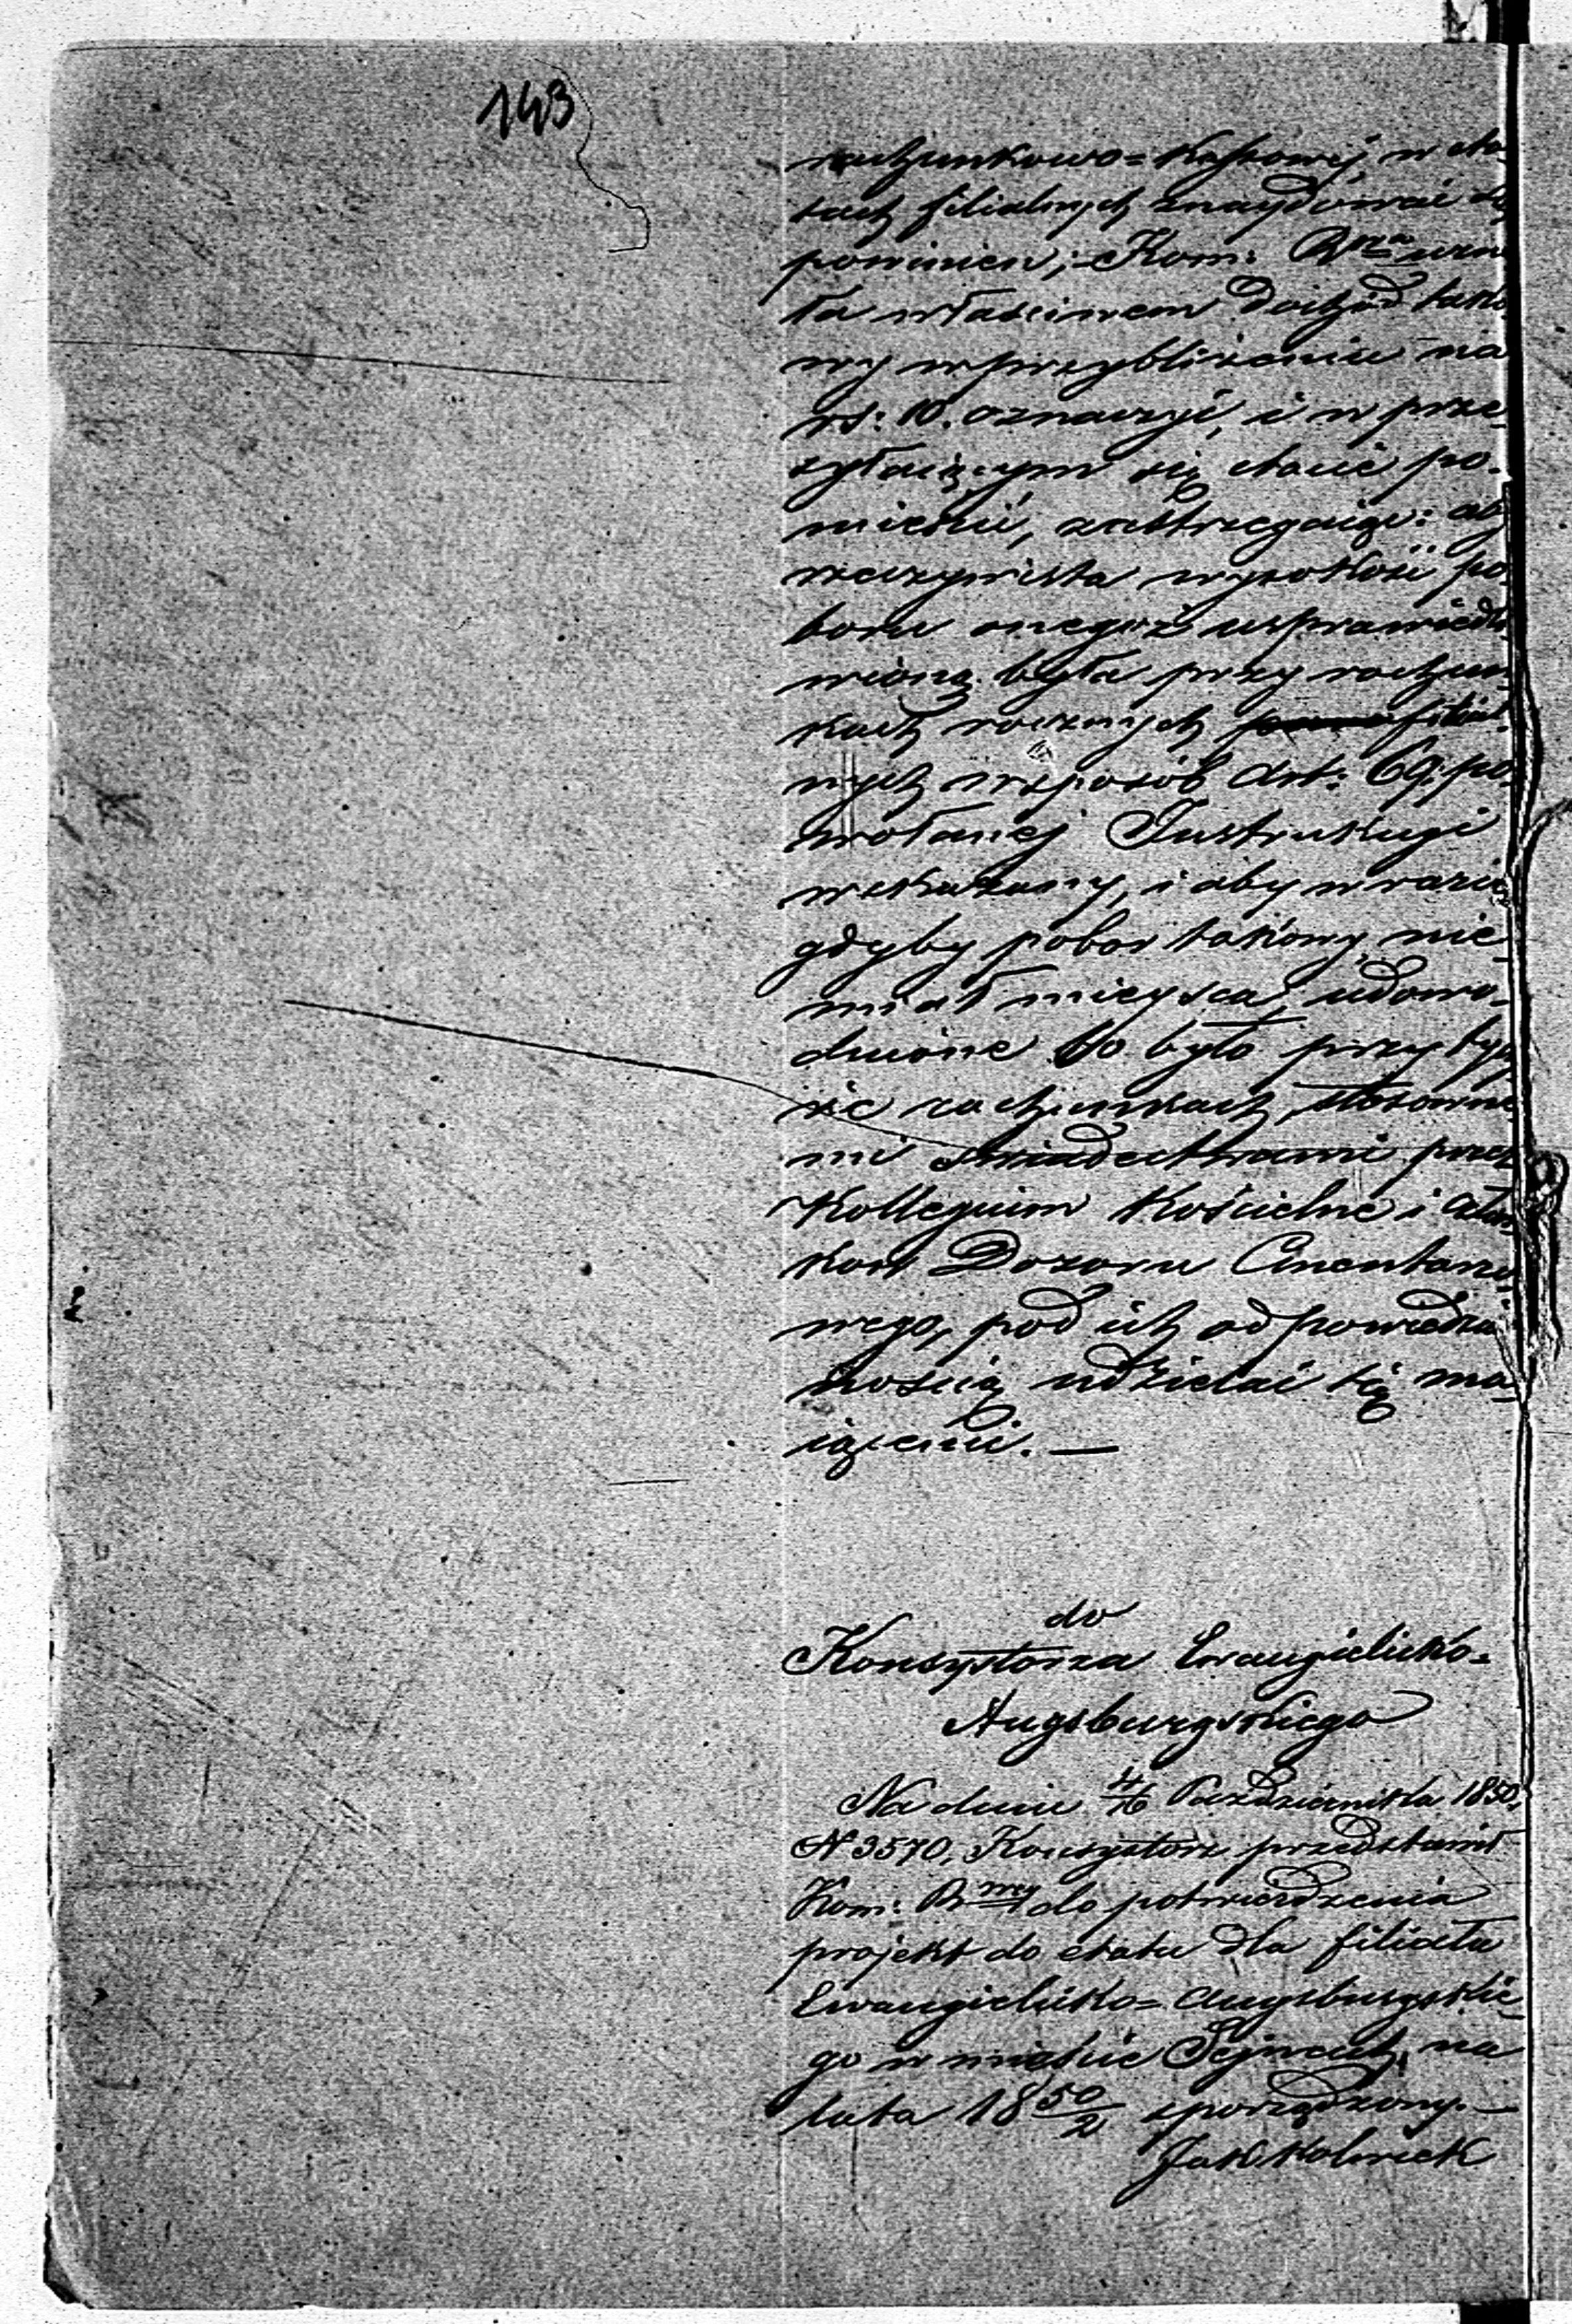 143
rachunkowo=Kassowej, w eta-
tach filialnych znaydować się
powinien; Kom: Rwa uzna-
ła właściwem dochód tako-
wy w przybliżeniu na
rs: 10. oznaczyć, i w prze-
syłaiącym się etacie po-
mieścić, zastrzegaiąc: aby
rzeczywista wysokość po-
boru onegoż usprawiedli-
wioną była przy rachun-
kach rocznych filial-
nych w sposób Art: 69. po-
wołanej Instrukcyi
wskazany, i aby w razie
gdyby pobor takowy nie
miał mieysca, udowo-
dnione to było przy tych-
że rachunkach, stosowne-
mi świadectwami przez
Kollegium Kościelne i Człon-
kow Dozoru Cmentarzo-
wego, pod ich odpowiedzial-
nością udzielać się ma-
iącemi. —
do
Konsystorza Ewangielicko=
Augsburgskiego
Na dniu 4/16 Października 1850.
N 3570, Konsystorz przedstawił
Kom: Rwey do potwierdzenia
projekt do etatu dla filiału
Ewangielicko=Augsburgskie-
go w mieście Sejnach, na
lata 18 50/2 sporządzony. —
Jakkolwiek